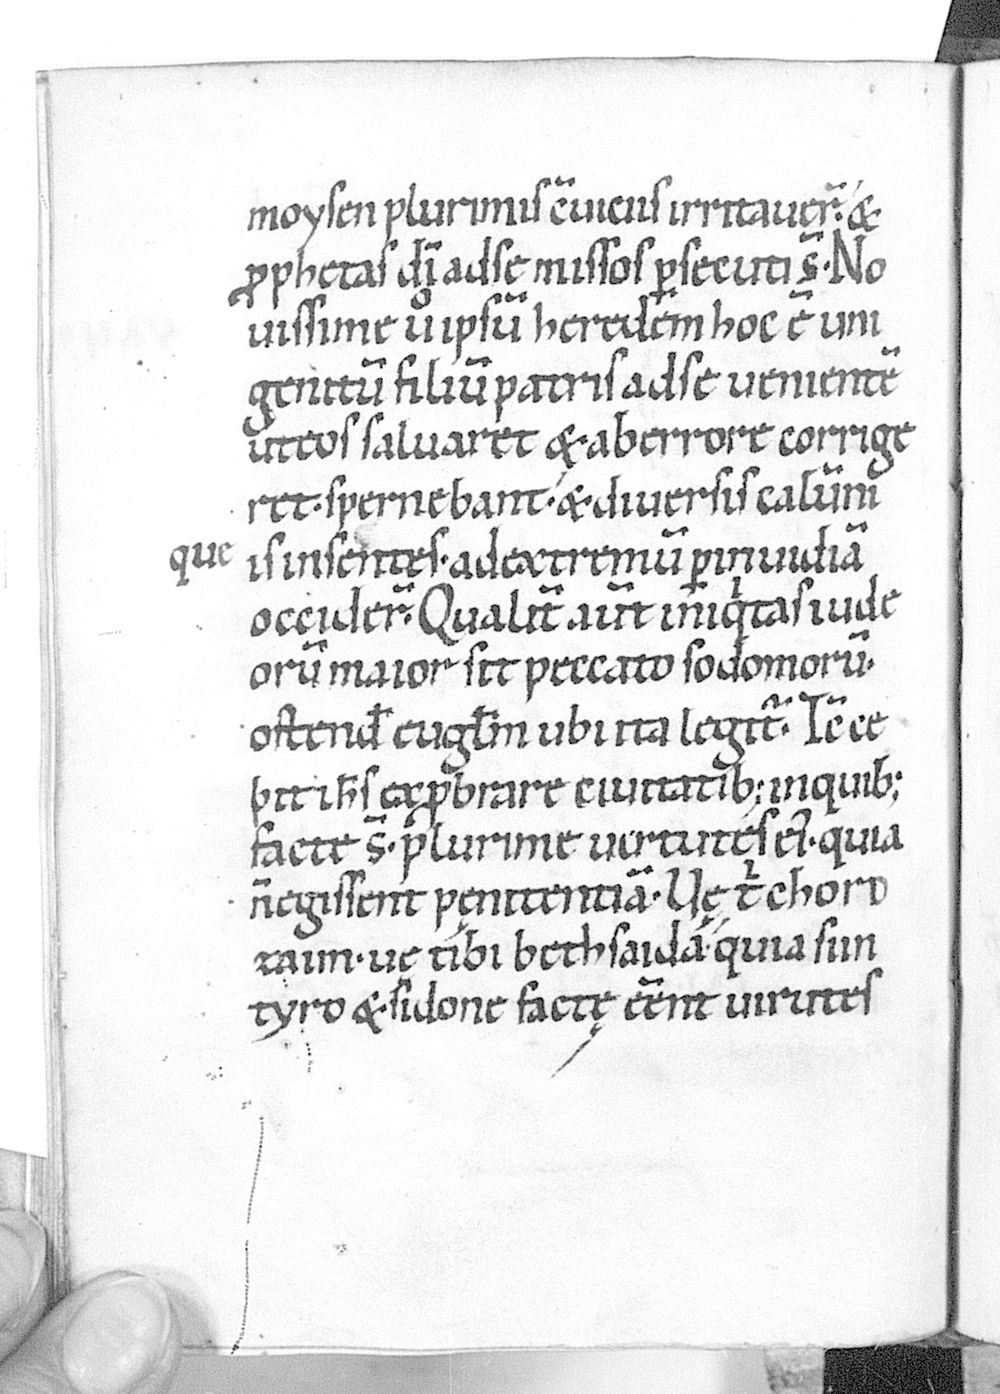 moysen plurimis c̄uiciis irritauer̄. &
ꝓphetas dn̄i ad se missos ꝑsecuti s̄. No
uissime ů ipsū heredem hoc ē uni
genitū filiū patris ad se uenientē
ut eos saluaret & ab errore corrige
ret. spernebant. & diuersis calūni
que is insentes. ad extremū ꝑ inuidiā
occider̄. Qualit̄ aut̄ iniq̇tas iude
orū maior sit peccato sodomorū.
ostend̄ euḡl̄m ubi ita legit̄. Te ce
pit ih̄s exꝓbrare ciuitatib; in quib;
facte s̄. plurime uirtutes ei. quia
n̄ egissent pęnitentiā. Uę t̄ choro
zaim. uę tibi bethsaida. quia si in
tyro & sidone factę ee̅nt uirutes